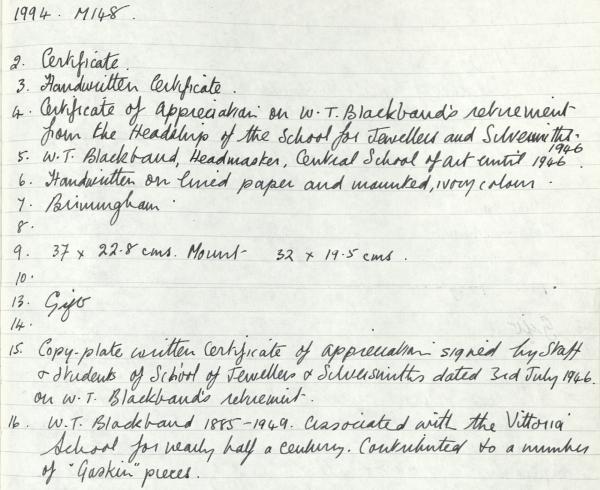 1994. M148.
2. Certificate.
3. Handwritten Certificate.
4. Certificate of appreciation on W.T. Blackband's retirement
from the Headship of the School for Jewellers and Silversmiths.
1946
5. W.T. Blackband, Headmaster, Central School of art until 1946.
6. Handwritten on lined paper and mounted, ivory colour.
7. Birmingham.
8.
9. 37 x 22.8 cms. Mount 32 x 19.5 cms.
10.
13. Gift
14.
15. Copy-plate written Certificate of appreciation signed by Staff
& students of School of Jewellers & Silversmiths dated 3rd July 1946.
on W.T. Blackband's retirement.
16. W.T. Blackband 1885-1949. Associated with the Vittoria
School for nearly half a century. Contributed to a number
of "Gaskin" pieces.